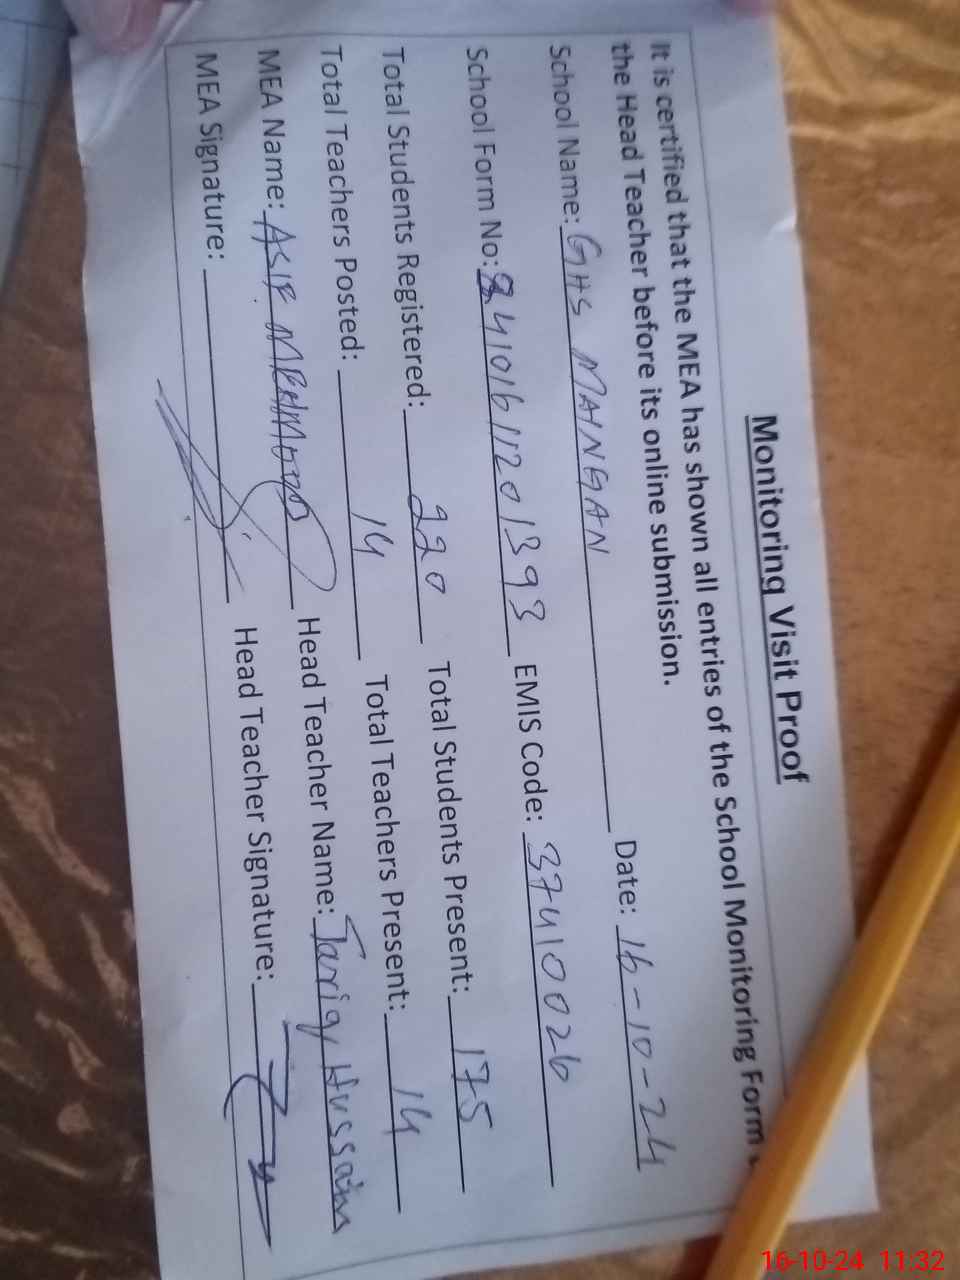 Monitoring Visit Proof
It is certified that the MEA has shown all entries of the School Monitoring Form
the Head Teacher before its online submission.
School Name: GHS MAHNGAN Date: 16-10-24
School Form No: 84101611201393 EMIS Code: 37410026
Total Students Registered: 220 Total Students Present: 175
Total Teachers Posted: 14 Total Teachers Present: 14
MEA Name: ASIF MEHMOOD Head Teacher Name: Tariq Hussain
MEA Signature: Head Teacher Signature:
16-10-24 11:32